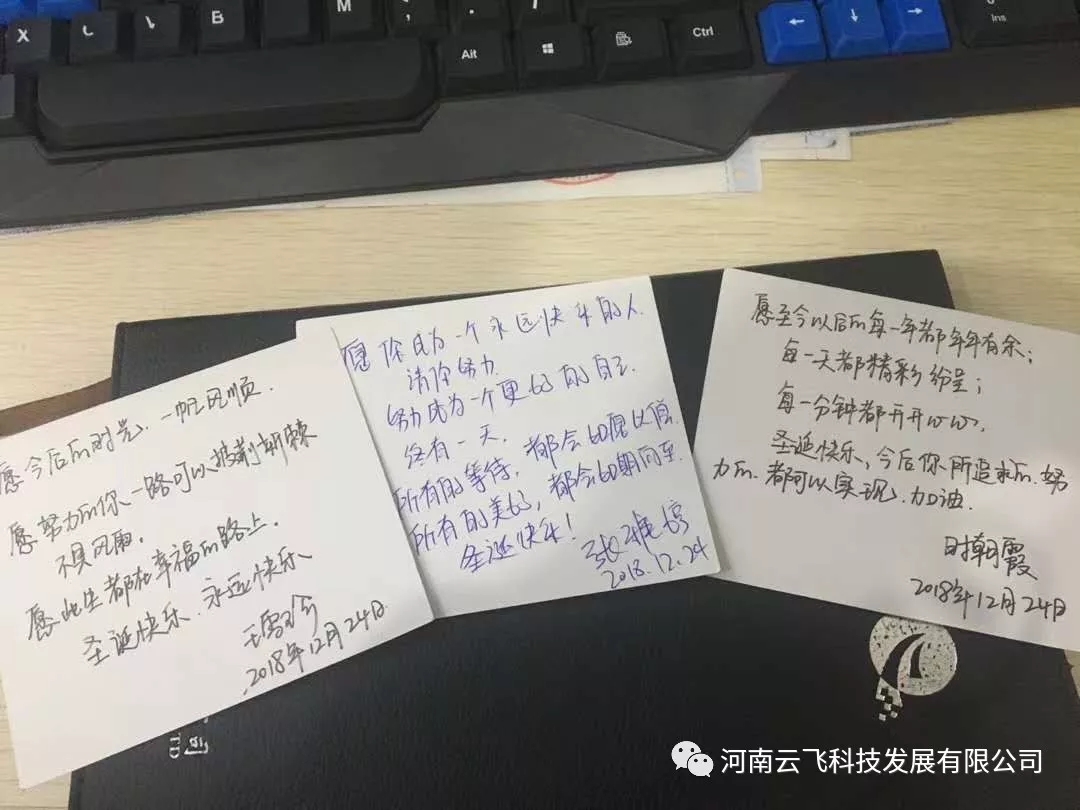 X
B
M
Alt
Ctrl
Ins
愿今后的时光,一帆风顺.
愿努力的你一路可以披荆斩棘
不畏风雨.
愿此生都在幸福的路上.
圣诞快乐.永远快乐
2018年12月24日
愿你成为一个永远快乐的人.
请你努力.
努力成为一个更好的自己.
终有一天.
所有的等待,都会如愿以偿.
所有的美好,都会如期而至.
圣诞快乐!
张雅婷
2018.12.24
愿至今以后的每一年都年年有余;
每一天都精彩纷呈;
每一分钟都开开心心,
圣诞快乐,今后你所追求的、努
力的、都可以实现.加油.
时朝霞
2018年12月24日
TD
河南云飞科技发展有限公司